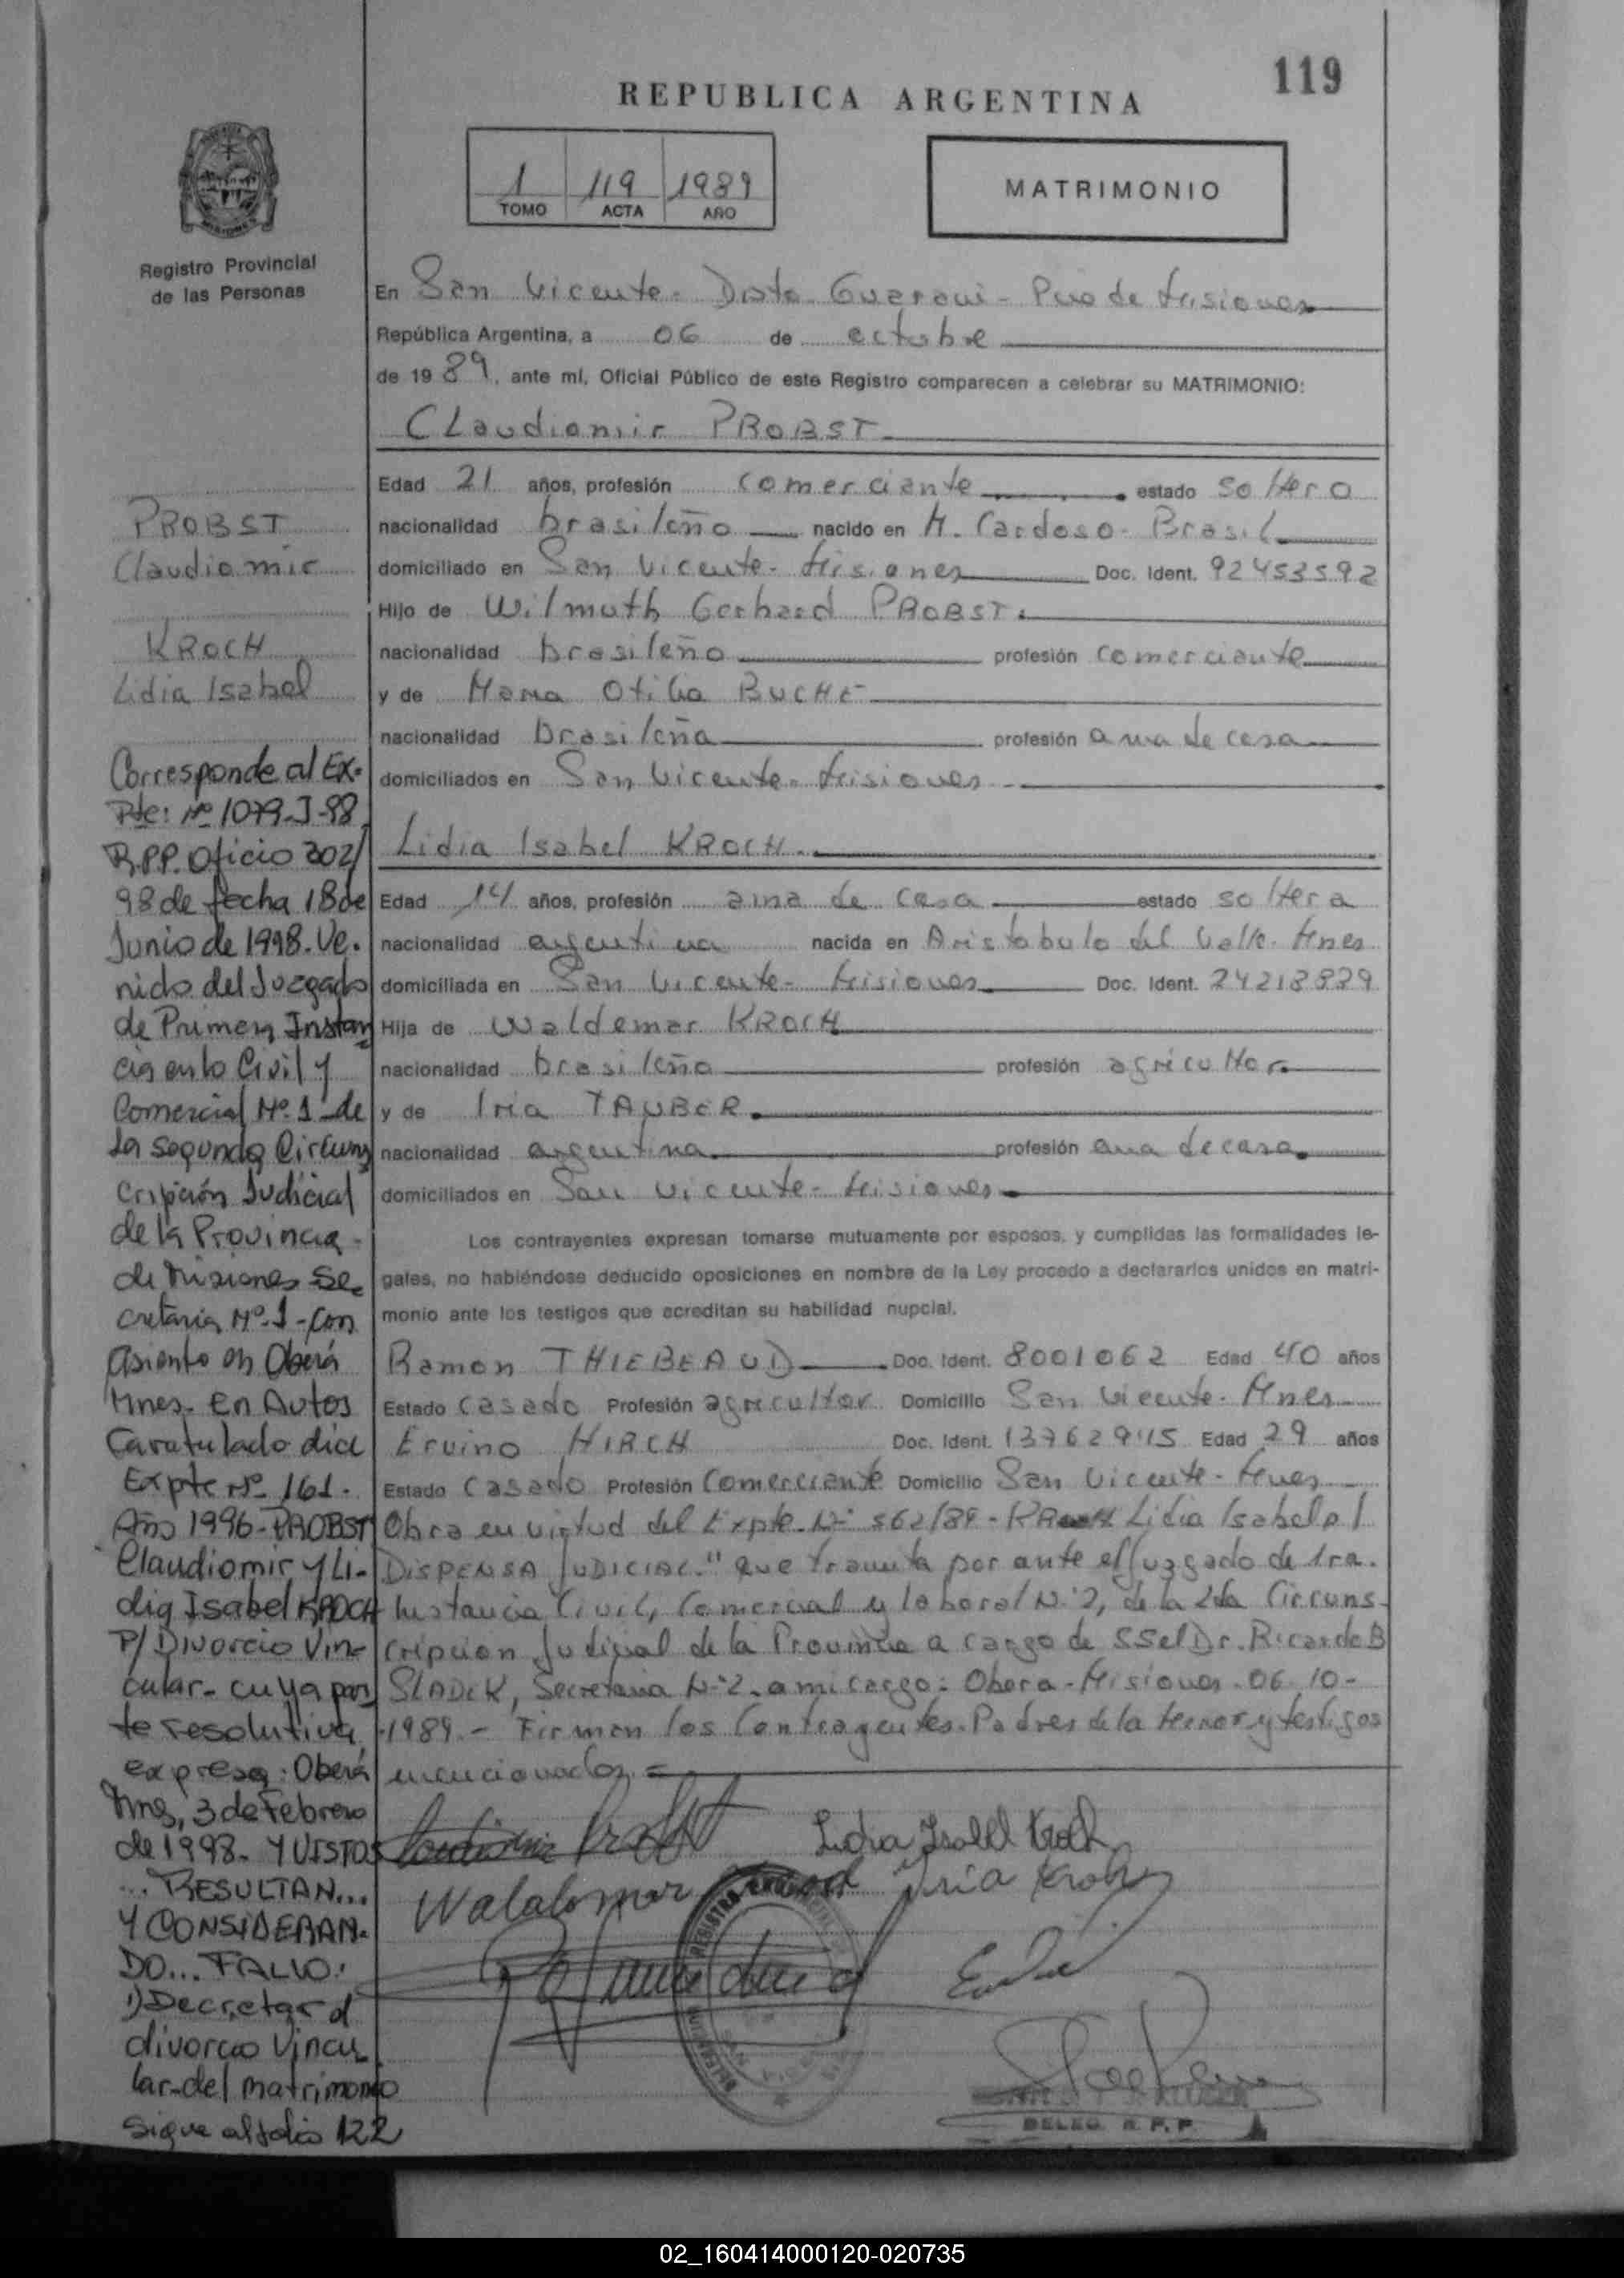 119
REPUBLICA ARGENTINA
1 119 1989
TOMO ACTA AÑO
MATRIMONIO
Registro Provincial
de las Personas
En San Vicente - Dpto Guarani - Pcia de Misiones
República Argentina, a 06 de octubre
de 1989, ante mí, Oficial Público de este Registro comparecen a celebrar su MATRIMONIO:
Claudiomir PROBST
Edad 21 años, profesión comerciante estado soltero
nacionalidad brasileño nacido en M. Cardoso - Brasil
domiciliado en San Vicente - Misiones Doc. Ident. 92453592
Hijo de Wilmuth Gerhard PROBST.
nacionalidad brasileño profesión comerciante
y de Maria Otilia BUCHE
nacionalidad brasileña profesión ama de casa
domiciliados en San Vicente - Misiones
Lidia Isabel KROCH.
Edad 14 años, profesión ama de casa estado soltera
nacionalidad argentina nacida en Aristobulo del Valle - Mnes
domiciliada en San Vicente - Misiones Doc. Ident. 24213839
Hija de Waldemar KROCH
nacionalidad brasileña profesión agricultor
y de Iria TAUBER.
nacionalidad argentina profesión ama de casa
domiciliados en San Vicente - Misiones
Los contrayentes expresan tomarse mutuamente por esposos, y cumplidas las formalidades le-
gales, no habiéndose deducido oposiciones en nombre de la Ley procedo a declararlos unidos en matri-
monio ante los testigos que acreditan su habilidad nupcial.
Ramon THIEBEAUD Doc. Ident. 8001062 Edad 40 años
Estado casado Profesión agricultor Domicilio San Vicente - Mnes
Ervino HIRCH Doc. Ident. 13762915 Edad 29 años
Estado casado Profesión Comerciante Domicilio San Vicente - Mnes
Obra en virtud del Expte. Nº 562/89 - KROCH Lidia Isabel s/
DISPENSA JUDICIAL" que tramita por ante el Juzgado de 1ra.
Instancia Civil, Comercial y laboral Nº 2, de la 2da Circuns-
cripcion Judicial de la Provincia a cargo de SSel Dr. Ricardo B
SLADEK, Secretaria Nº 2 a mi cargo: Obera - Misiones - 06 - 10 -
1989. - Firman los Contrayentes. Padres de la menor y testigos
mencionados. =
Lidia Isabel Kroch
Iria Kroch
DELEG. R.P.P.
PROBST
Claudiomir
KROCH
Lidia Isabel
Corresponde al Ex-
Pte: Nº 1079-J-98
R.P.P. Oficio 302/
98 de fecha 18 de
Junio de 1998. Ve.
nido del Juzgado
de Primera Instan
cia en lo Civil y
Comercial Nº 1 de
la segunda Circuns
cripción Judicial
de la Provincia -
de Misiones Se-
cretaria Nº 1 - con
asiento en Oberá
Mnes. en Autos
Caratulado dice
Expte Nº 161 -
Año 1996 - PROBST
Claudiomir y Li-
dia Isabel KROCH
P/ Divorcio Vin-
cular - cuya par
te resolutiva
expresa: Oberá
Mnes, 3 de Febrero
de 1998. Y VISTOS
... RESULTAN...
Y CONSIDERAN-
DO... FALLO:
1) Decretar el
divorcio Vincu
lar del matrimonio
Sigue al folio 122
02_160414000120-020735